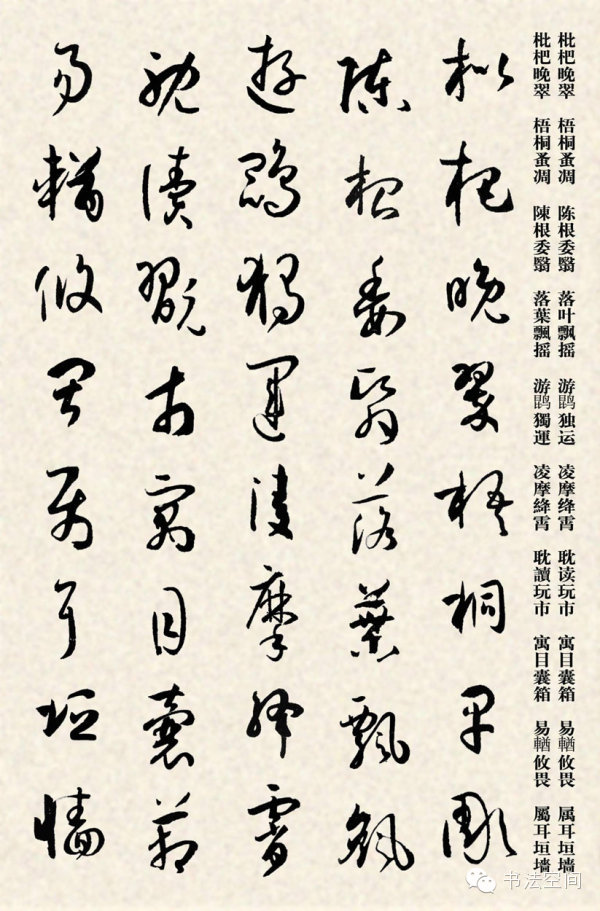 枇杷晚翠 梧桐蚤凋 陈根委翳 落叶飘摇 游鹍独运 凌摩绛霄 耽读玩市 寓目囊箱 易輶攸畏 属耳垣墙
枇杷晚翠 梧桐蚤凋 陳根委翳 落葉飄摇 游鹍獨運 凌摩絳霄 耽讀玩市 寓目囊箱 易輶攸畏 屬耳垣墙
枇杷晚翠梧桐早彫
陳根委翳落葉飄颻
遊鵾獨運凌摩絳霄
耽讀翫市寓目囊箱
易輶攸畏属耳垣墙
书法空间